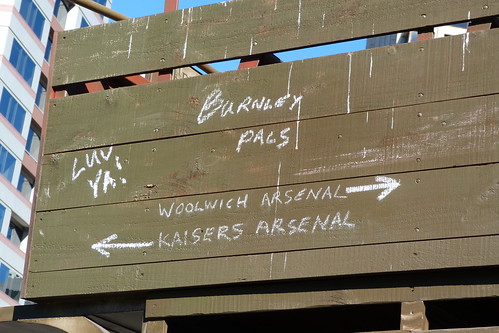 BURNLEY
PALS
LUV
YA!
WOOLWICH ARSENAL
KAISERS ARSENAL